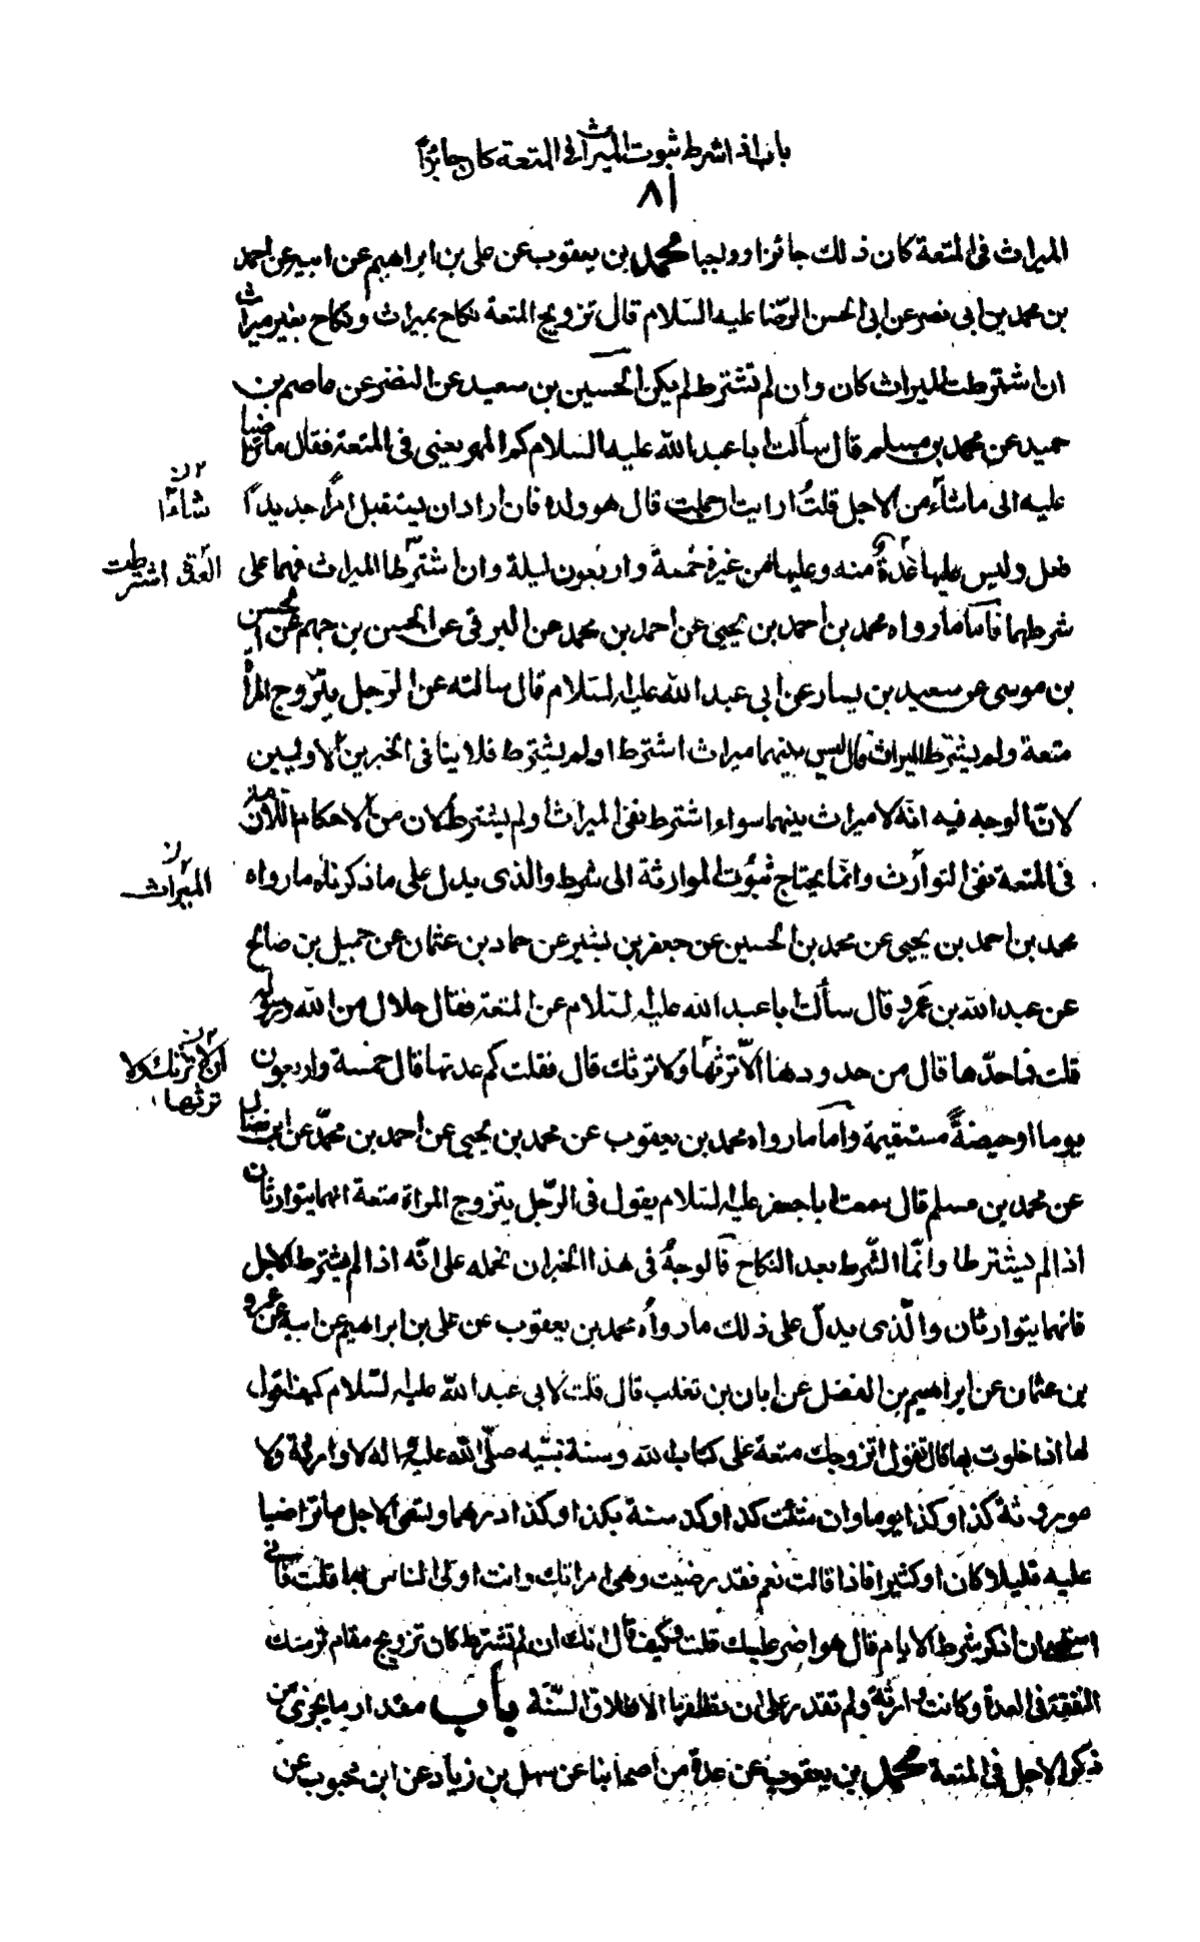 باب اذا شرط ثبوت الميراث فى المتعة كان جائزًا
٨١
الميراث فى المتعة كان ذلك جائزا وواجبا محمد بن يعقوب عن على بن ابراهيم عن ابيه عن احمد
بن محمد بن ابى نصر عن ابى الحسن الرّضا عليه السّلام قال تزويج المتعة نكاح بميراث ونكاح بغير ميراث
ان اشترطت الميراث كان وان لم تشترط لم يكن الحسين بن سعيد عن النضر عن عاصم بن
حميد عن محمد بن مسلم قال سألت ابا عبد الله عليه السلام كم المهر يعنى فى المتعة فقال ما تراضيا
عليه الى ما شاء من الاجل قلتُ ارايت ان حملت قال هو ولده فان اراد ان يستقبل امرًا جديدًا
شاءا
فعل وليس عليها عدةٌ منه وعليها من غيره خمسة واربعون ليلة وان اشترطا الميراث فهما على
العدة اشترطت
شرطهما فاما ما رواه محمد بن احمد بن يحيى عن احمد بن محمد عن البرقى عن الحسن بن جهم عن الحسن
بن موسى عن سعيد بن يسار عن ابى عبد الله عليه السّلام قال سالته عن الرّجل يتزوج المرأ
متعة ولم يشترط الميراث قال ليس بينهما ميراث اشترط او لم يشترط فلا ينافى الخبرين الاوليين
لانّ الوجه فيه انّه لا ميراث بينهما سواء اشترط نفى الميراث او لم يشترط لان من الاحكام اللازمة
فى المتعة نفى التوارث وانّما يحتاج ثبوت الموارثة الى شرط والذى يدل على ما ذكرناه ما رواه
الميراث
محمد بن احمد بن يحيى عن محمد بن الحسين عن جعفر بن بشير عن حماد بن عثمان عن جميل بن صالح
عن عبد الله بن عمرو قال سألت ابا عبد الله عليه السّلام عن المتعة فقال حلال من الله ورسوله
قلت فما حدّها قال من حدودها الّا ترثها ولا ترثك قال فقلت كم عدتها قال خمسة واربعون
ان لا ترثك ولا
ترثها
يوما او حيضةً مستقيمة وأما ما رواه محمد بن يعقوب عن محمد بن يحيى عن احمد بن محمّد عن ابن فضال
عن محمد بن مسلم قال سمعت ابا جعفر عليه السّلام يقول فى الرّجل يتزوج المراة متعة انهما يتوارثان
اذا لم يشترطا وانّما الشّرط بعد النكاح فالوجهُ فى هذا الخبر ان نحمله على انّه اذا لم يشترط الاجل
فانهما يتوارثان والّذى يدلّ على ذلك ما رواه محمد بن يعقوب عن على بن ابراهيم عن ابيه عن عمرو
بن عثمان عن ابراهيم بن الفضل عن ابان بن تغلب قال قلت لابى عبد الله عليه السّلام كيف اقول
لها اذا خلوت بها قال تقول اتزوجك متعة على كتاب الله وسنة نبيّه صلّى الله عليه واله لا وارثة ولا
موروثة كذا وكذا يوما وان شئت كذا وكذا سنة بكذا وكذا درهما وتسمى الاجل ما تراضيا
عليه قليلا كان او كثيرا فاذا قالت نعم فقد رضيت وهى امراتك وانت اولى الناس بها قلت فانى
استحيى ان اذكر شرط الايام قال هو اضر عليك قلت وكيف قال انك ان لم تشترط كان تزويج مقام لزمتك
النفقة فى العدة وكانت وارثة ولم تقدر على ان تطلقها الا طلاق السّنّة باب مقدار ما يجزى من
ذكر الاجل فى المتعة محمد بن يعقوب عن عدة من اصحابنا عن سهل بن زياد عن ابن محبوب عن